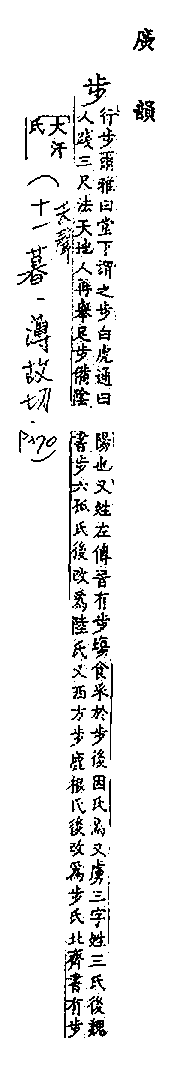 廣韻
步
行步爾雅曰堂下謂之步白虎通曰
人踐三尺法天地人再舉足步備陰
陽也又姓左傳晉有步揚食采於步後因氏焉又虜三字姓三氏後魏
書步六孤氏後改爲陸氏又西方步鹿根氏後改爲步氏北齊書有步
大汗
氏
去聲
(十一暮·薄故切·
P370)